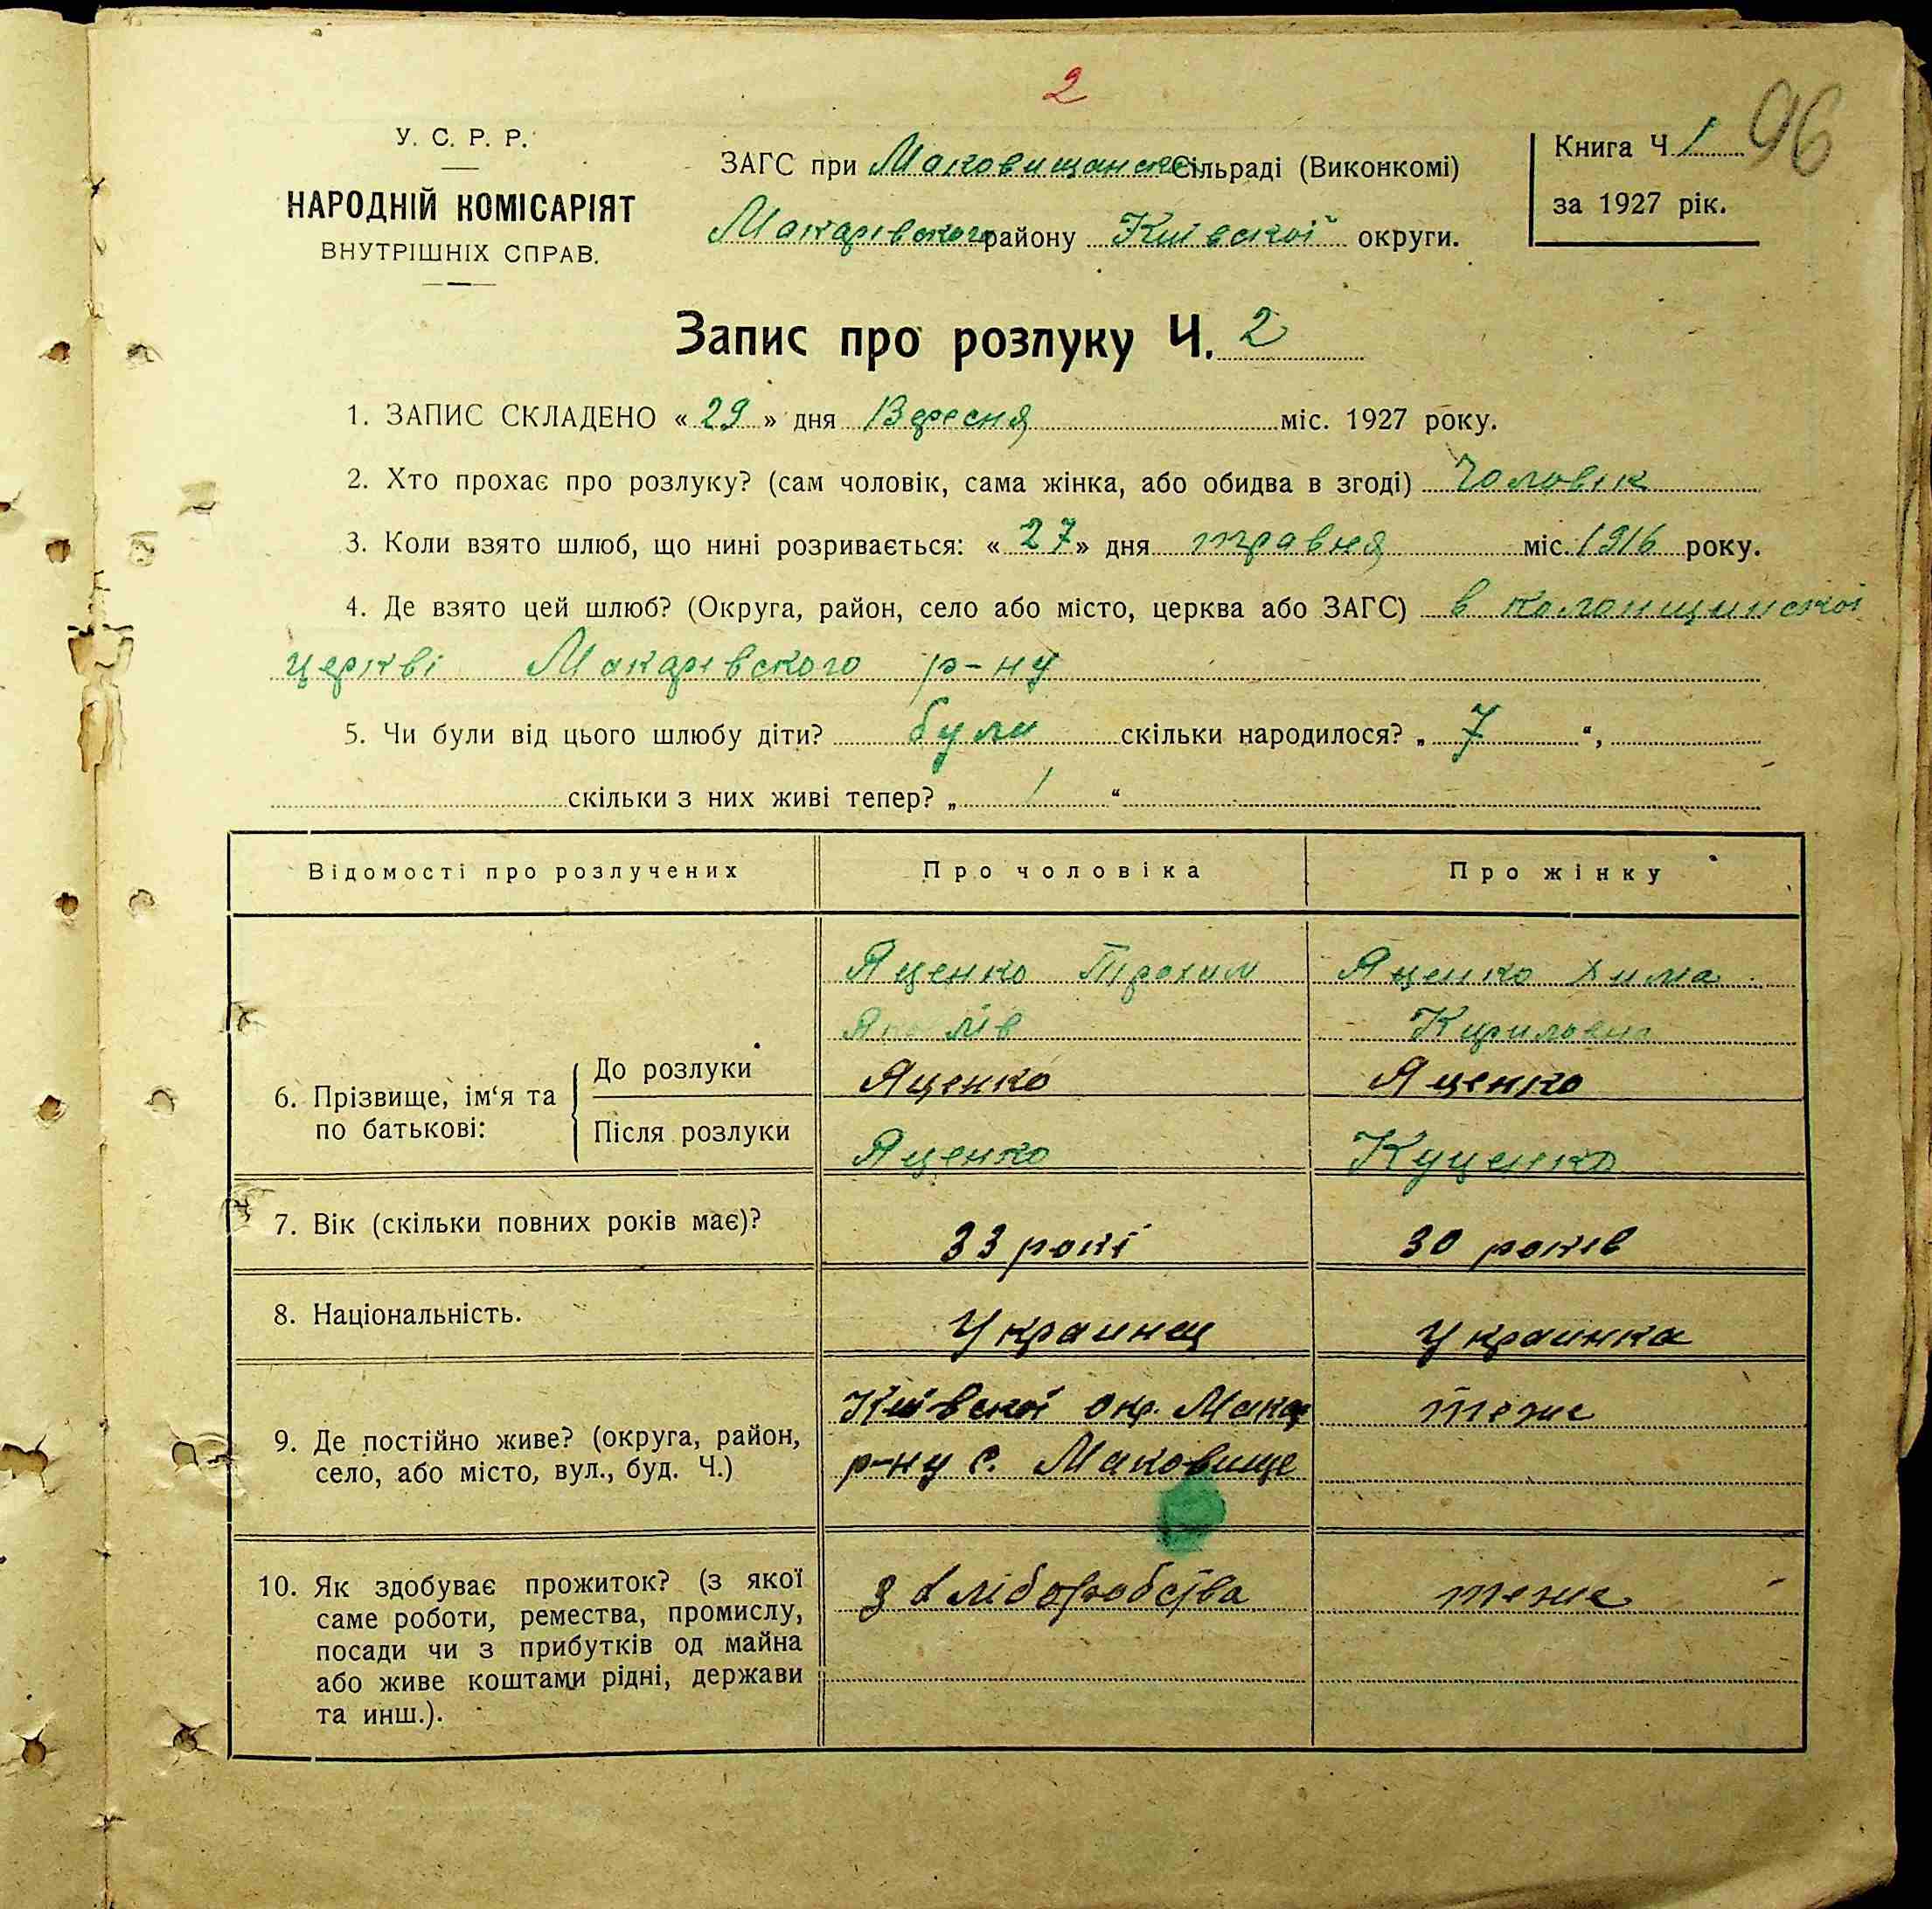 2
96
У. С. Р. Р.
НАРОДНІЙ КОМІСАРІЯТ
ВНУТРІШНІХ СПРАВ.
ЗАГС при Маковищанско Сільраді (Виконкомі)
Макарівского району Київскої округи.
Книга Ч 1
за 1927 рік.
Запис про розлуку Ч. 2
1. ЗАПИС СКЛАДЕНО « 29 » дня Вересня міс. 1927 року.
2. Хто прохає про розлуку? (сам чоловік, сама жінка, або обидва в згоді) Чоловік
3. Коли взято шлюб, що нині розривається: « 27 » дня травня міс. 1916 року.
4. Де взято цей шлюб? (Округа, район, село або місто, церква або ЗАГС) в Колонщинскої
церкві Макарівского р-ну
5. Чи були від цього шлюбу діти? були скільки народилося? „ 7 “,
скільки з них живі тепер? „ 1 “
Відомості про розлучених Про чоловіка Про жінку
Яценко Трохим Яценко Хима
Кириловна
6. Прізвище, ім‘я та по батькові:
До розлуки Яценко Яценко
Після розлуки Яценко Куценко
7. Вік (скільки повних років має)? 33 рокі 30 років
8. Національність. Украинец Украинка
9. Де постійно живе? (округа, район,
село, або місто, вул., буд. Ч.)
Київскої окр. Макар теже
р-ну с. Маковище
10. Як здобуває прожиток? (з якої
саме роботи, ремества, промислу,
посади чи з прибутків од майна
або живе коштами рідні, держави
та инш.).
З хліборобства теже